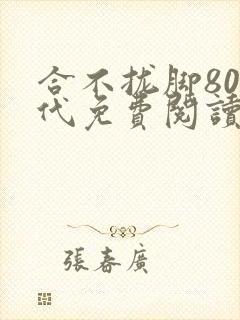 合不拢脚80
代免費閱讀
張春廣